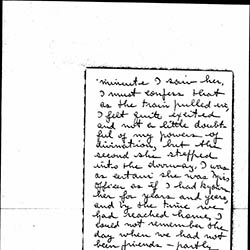 minute I saw her,
I must confess that
as the train pulled in,
I felt quite excited
and not a little doubt
ful of my powers of
divination, but the
second she stepped
into the doorway I was
as certain she was Miss
as if I had known
her for years and years,
and by the time we
had reached home, I
could not remember the
day when we had not
been friends – partly